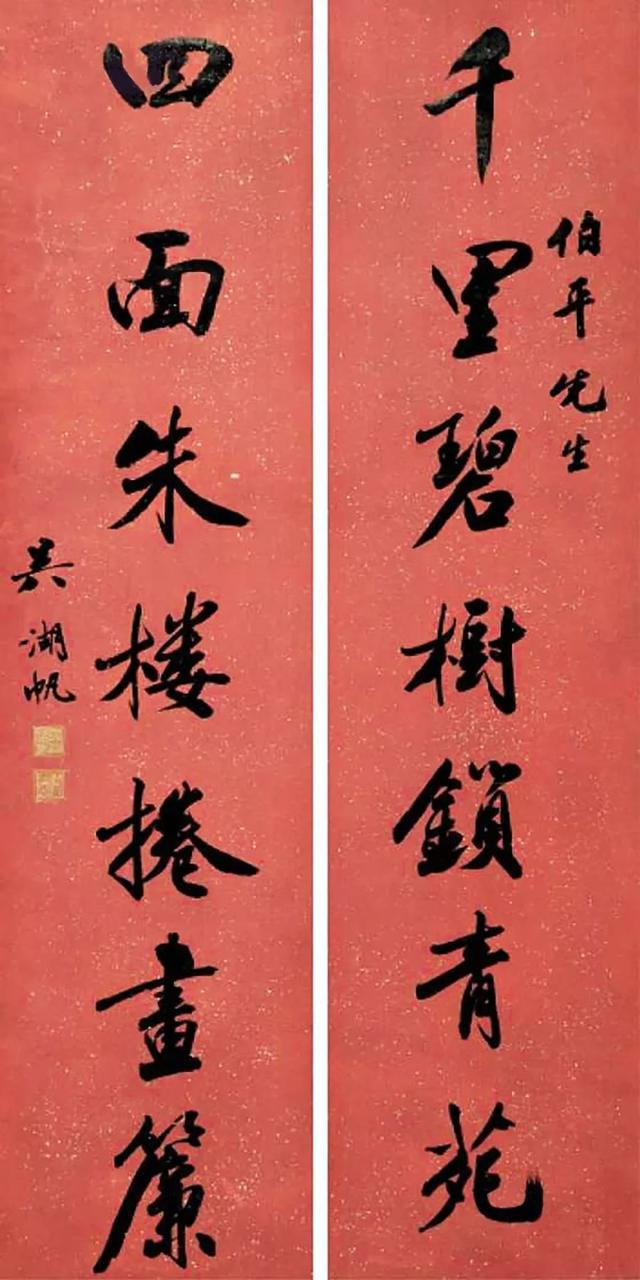 伯平先生
千里碧樹鎖青苑
四面朱楼捲畫簾
吴湖帆